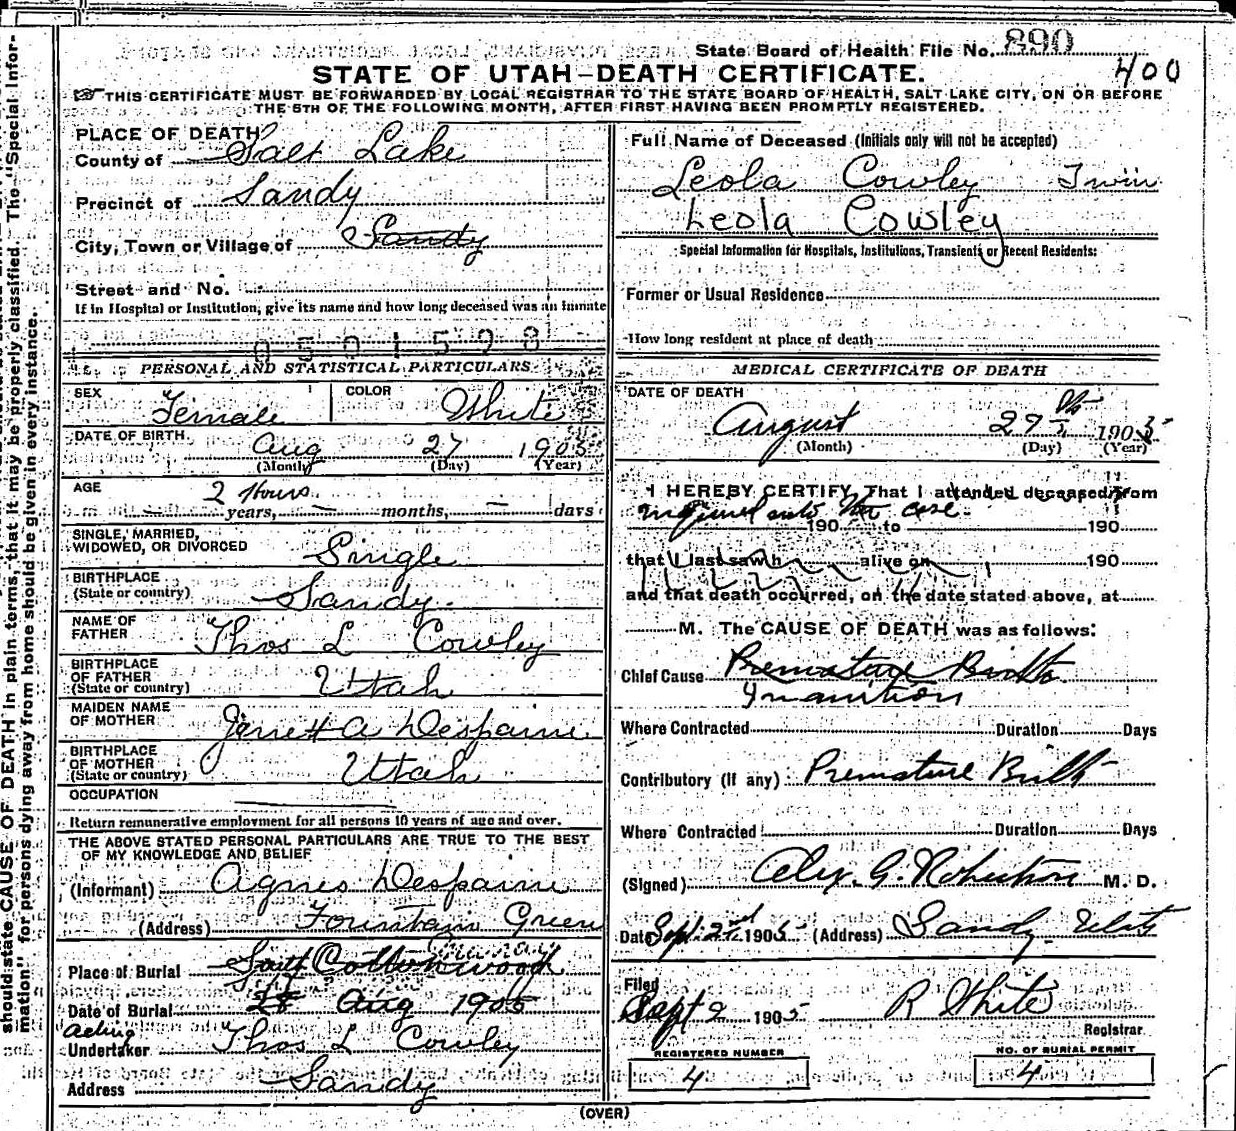 State Board of Health File No. 890
400
STATE OF UTAH—DEATH CERTIFICATE.
THIS CERTIFICATE MUST BE FORWARDED BY LOCAL REGISTRAR TO THE STATE BOARD OF HEALTH, SALT LAKE CITY, ON OR BEFORE
THE 5TH OF THE FOLLOWING MONTH, AFTER FIRST HAVING BEEN PROMPTLY REGISTERED.
should state CAUSE OF DEATH in plain terms, that it may be properly classified. The "Special Infor-
mation" for persons dying away from home should be given in every instance.
PLACE OF DEATH
County of Salt Lake
Precinct of Sandy
City, Town or Village of Sandy
Street and No.
If in Hospital or Institution, give its name and how long deceased was an inmate
PERSONAL AND STATISTICAL PARTICULARS
SEX Female COLOR White
DATE OF BIRTH Aug 27 1905
(Month) (Day) (Year)
AGE 2 Hours
— years, — months, — days
SINGLE, MARRIED,
WIDOWED, OR DIVORCED Single
BIRTHPLACE
(State or country) Sandy.
NAME OF
FATHER Thos L Cowley
BIRTHPLACE
OF FATHER
(State or country) Utah
MAIDEN NAME
OF MOTHER A Despain
BIRTHPLACE
OF MOTHER
(State or country) Utah
OCCUPATION
Return remunerative employment for all persons 10 years of age and over.
THE ABOVE STATED PERSONAL PARTICULARS ARE TRUE TO THE BEST
OF MY KNOWLEDGE AND BELIEF
(Informant) Agnes Despain
(Address) Fountain Green
Place of Burial South Cottonwood
Date of Burial 28 Aug 1905
Acting
Undertaker Thos L Cowley
Address Sandy
Full Name of Deceased (Initials only will not be accepted)
Leola Cowley Twin
Leola Cowley
Special Information for Hospitals, Institutions, Transients or Recent Residents:
Former or Usual Residence
How long resident at place of death
MEDICAL CERTIFICATE OF DEATH
DATE OF DEATH
August 27 1905
(Month) (Day) (Year)
I HEREBY CERTIFY, That I attended deceased from
inquired into the case.
190 to 190
that I last saw h alive on 190
and that death occurred, on the date stated above, at
M. The CAUSE OF DEATH was as follows:
Chief Cause Premature Birth
Inanition
Where Contracted Duration Days
Contributory (if any) Premature Birth
Where Contracted Duration Days
(Signed) Alex. G. Robertson M. D.
Date Sept. 2nd 1905 (Address) Sandy Utah
Filed
Sept 2 1905 R White
Registrar
REGISTERED NUMBER
4
NO. OF BURIAL PERMIT
4
(OVER)